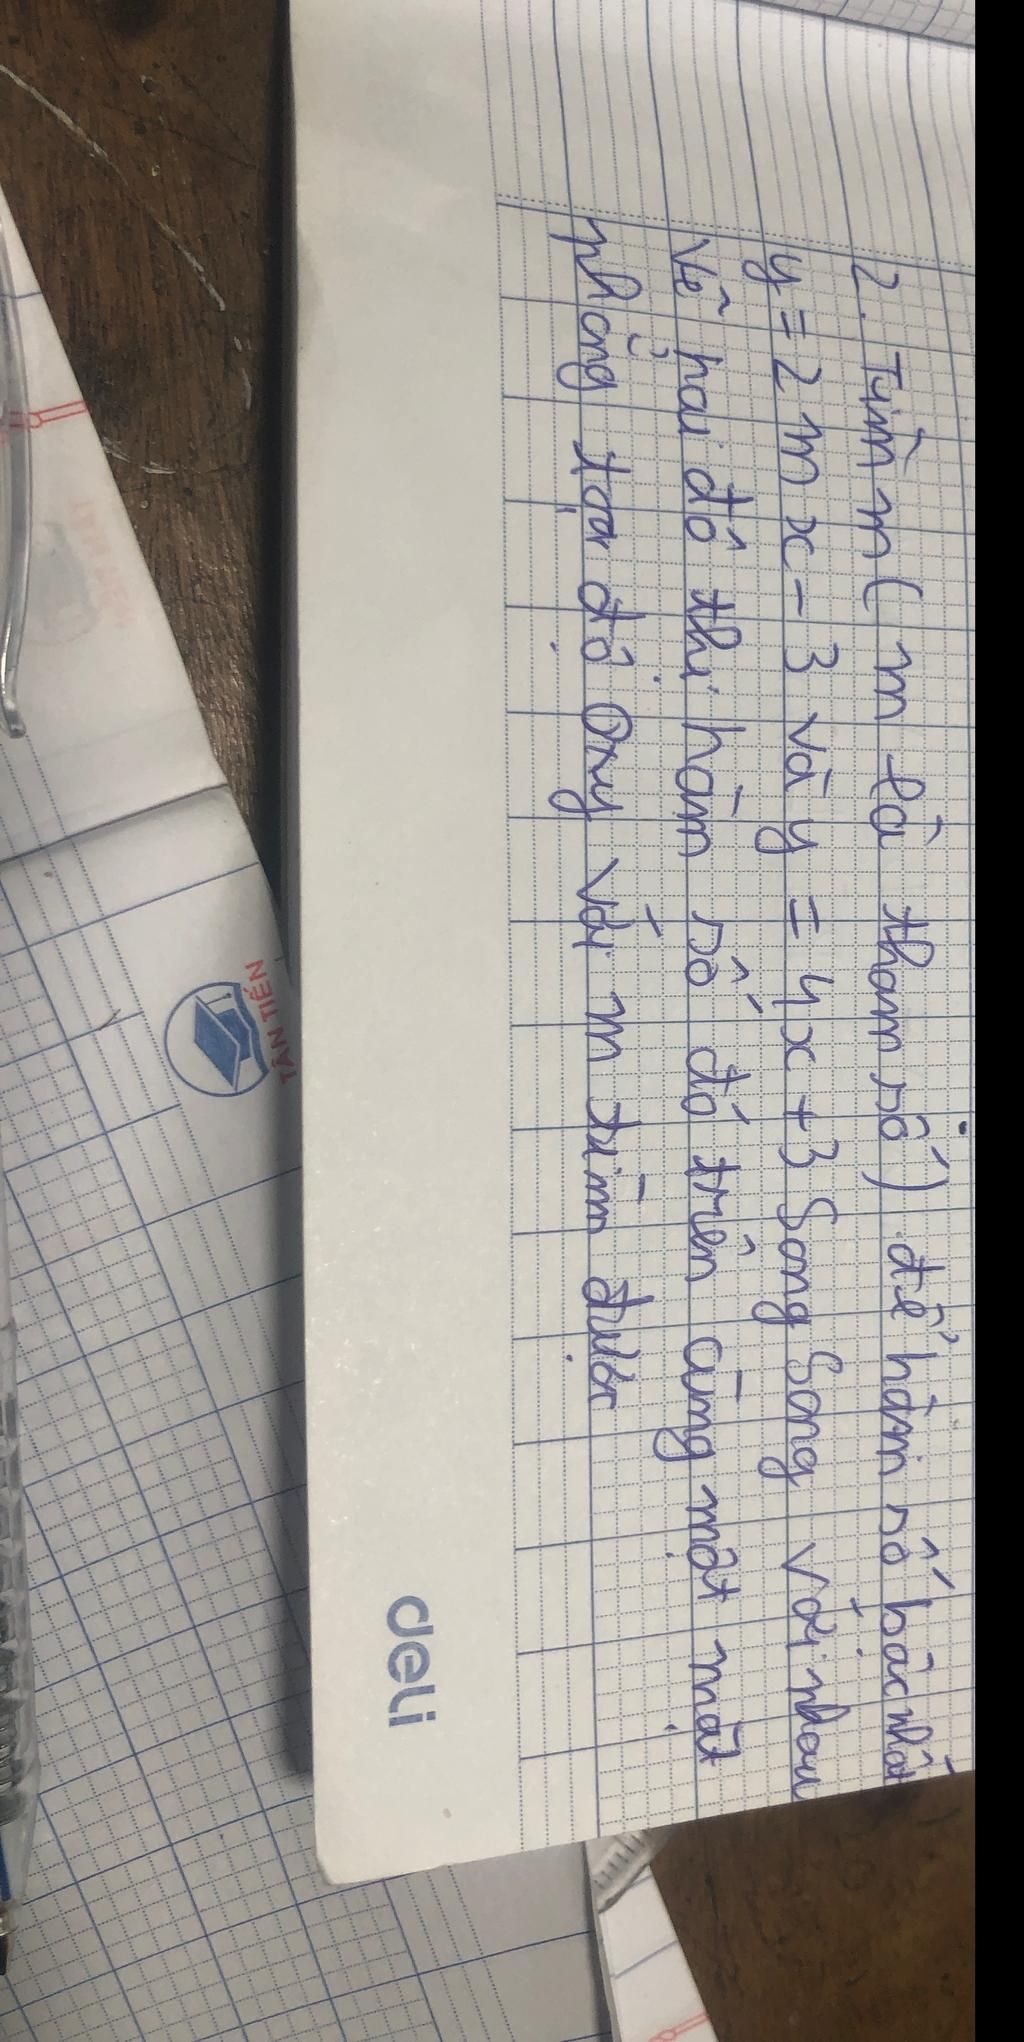 2. Tìm m ( m là tham số ) để hàm số bậc nhất
y = 2 m x - 3 và y = 4x + 3 Song Song với nhau
Vẽ hai đồ thị hàm số đó trên cùng một mặt
phẳng tọa độ Oxy với m tìm được
deli
TÂN TIẾN